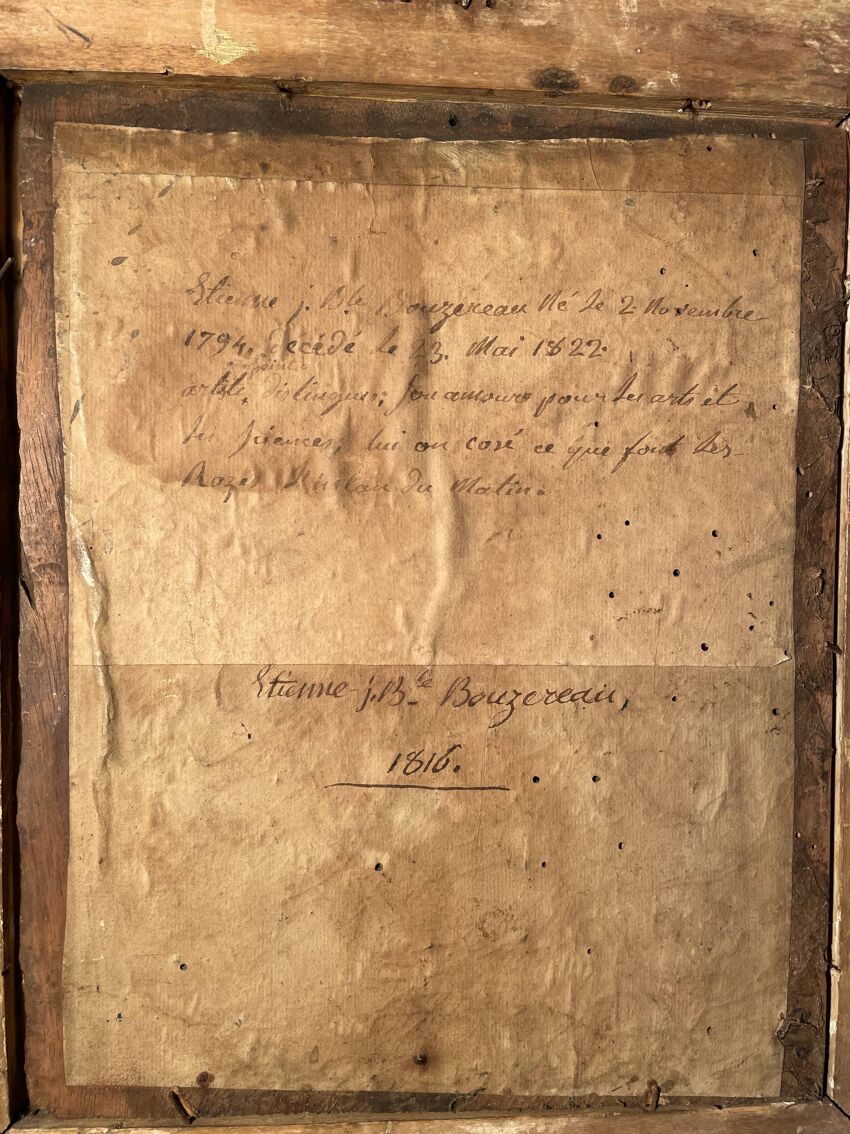 Etienne j. Bte Bouzereau Né le 2 Novembre
1794. décédé le 23. Mai 1822.
peintre
artiste, distingué; son amour pour les arts et
les siences, lui on cosé ce que font les
Rozes du Matin.
Etienne j. Bte Bouzereau,
1816.